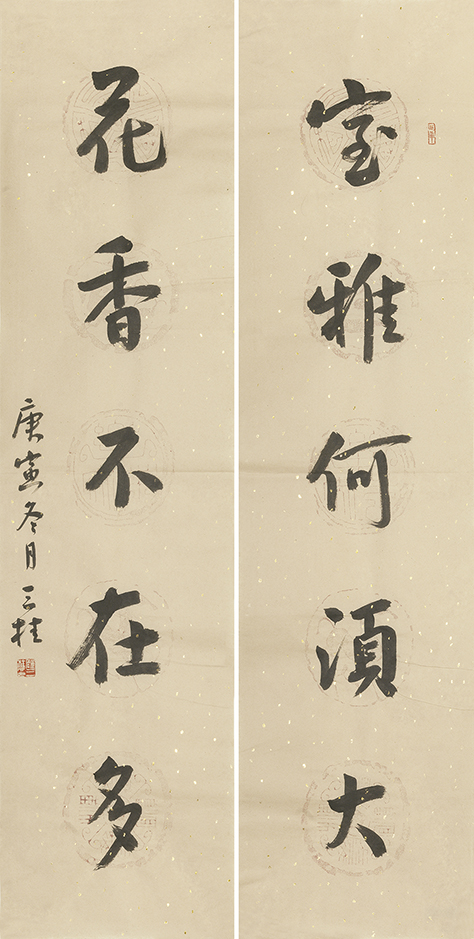 室雅何須大
花香不在多
庚寅冬月三桂